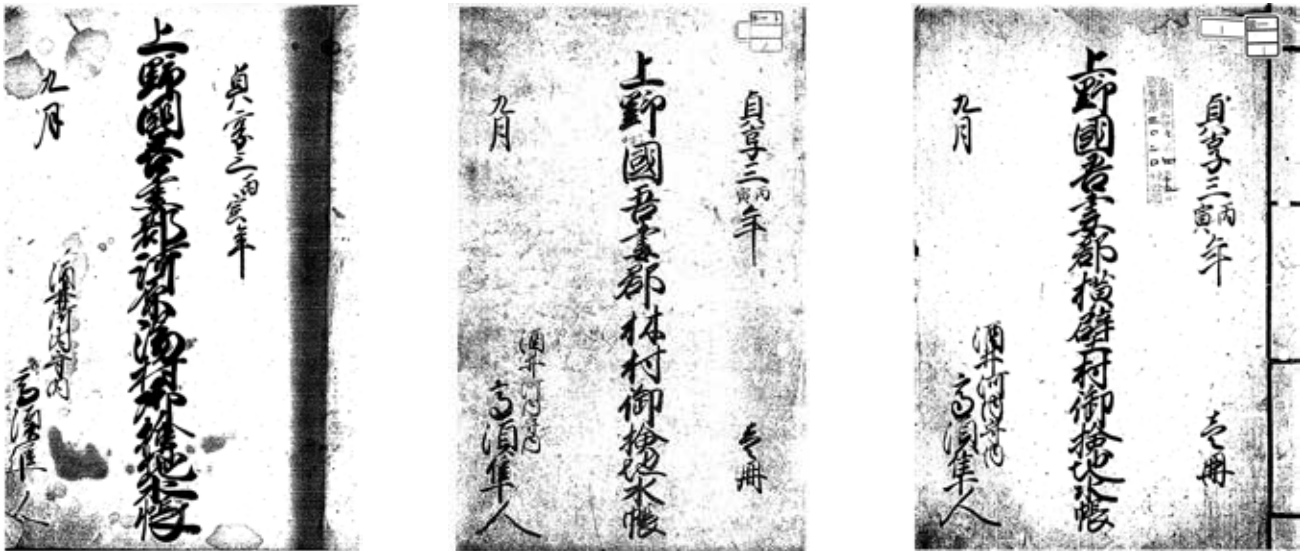 貞享三丙寅年
上野國吾妻郡河原湯村御検地水帳
九月
酒井河内守内
高須隼人
貞享三丙寅年
壱冊
上野國吾妻郡林村御検地水帳
九月
酒井河内守内
高須隼人
貞享三丙寅年
壱冊
上野國吾妻郡横壁村御検地水帳
九月
酒井河内守内
高須隼人